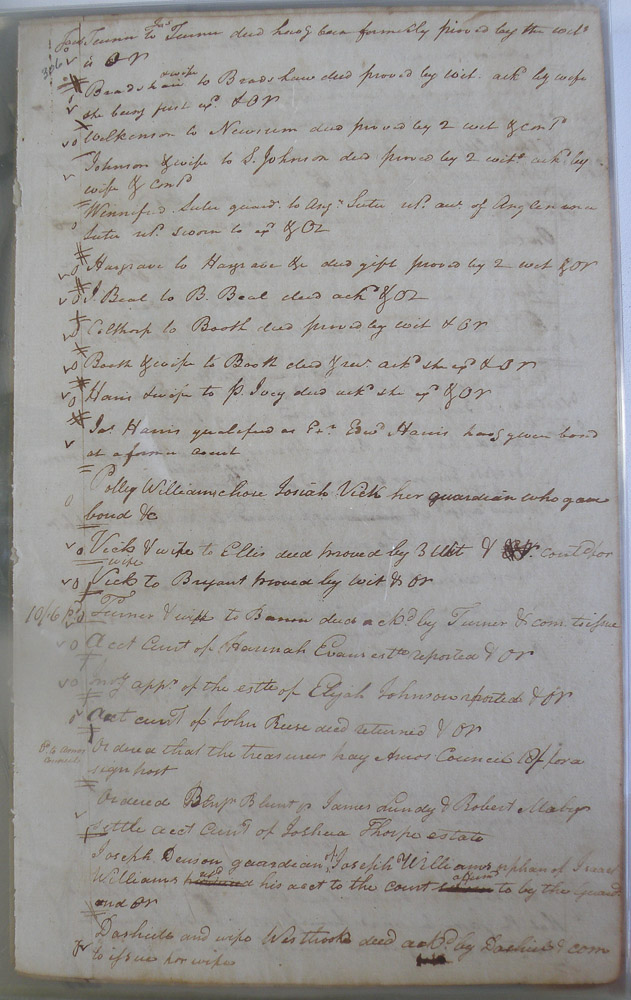 Turner to Jas Turner deed havg been formerly proved by the wits
is OR
Bradshaw & wife to Bradshaw deed proved by wit. ackd by wife
she being first exd & OR
Wilkinson to Newsum deed proved by 2 wit & contd
Johnson & wife to S. Johnson deed proved by 2 wits ackd by
wife & contd
Winnifred Suter guard. to
Suter sworn to exd & OR
Hargrave to Hargrave &c deed gift proved by 2 wit & OR
J. Beal to B. Beal deed ackd & OR
Colthorp to Booth deed proved by wit & OR
Booth & wife to Booth deed ackd she exd & OR
Harris & wife to P. Ivey deed ackd she exd & OR
Jas. Harris qualified as Exr Edwd Harris havg given bond
at a former court
Polly Williams chose Josiah Vick her guardian who gave
bond &c
Vick & wife to Ellis deed proved by 3 Wit & contd for
wife
Vick to Bryant proved by wit & OR
10/6 Pd Turner & wife to deed ackd by Turner & com. to issue
acct Curt of Hannah Evans estte reported & OR
Invy appt of the estte of Elijah Johnson reported & OR
acct curt of John Reese deed returned & OR
Ordered that the treasurer pay Amos Council 18/ for a
sign post
Ordered Benjn Blunt James Lundy & Robert Mabry
settle acct Curt of Joshua Thorpe estate
Joseph Denson guardian of Joseph Williams orphan of Israel
Williams his acct to the court to by the Guard
and OR
Dashiell and wife Westbrook deed ackd by Dashiell & com
to issue for wife